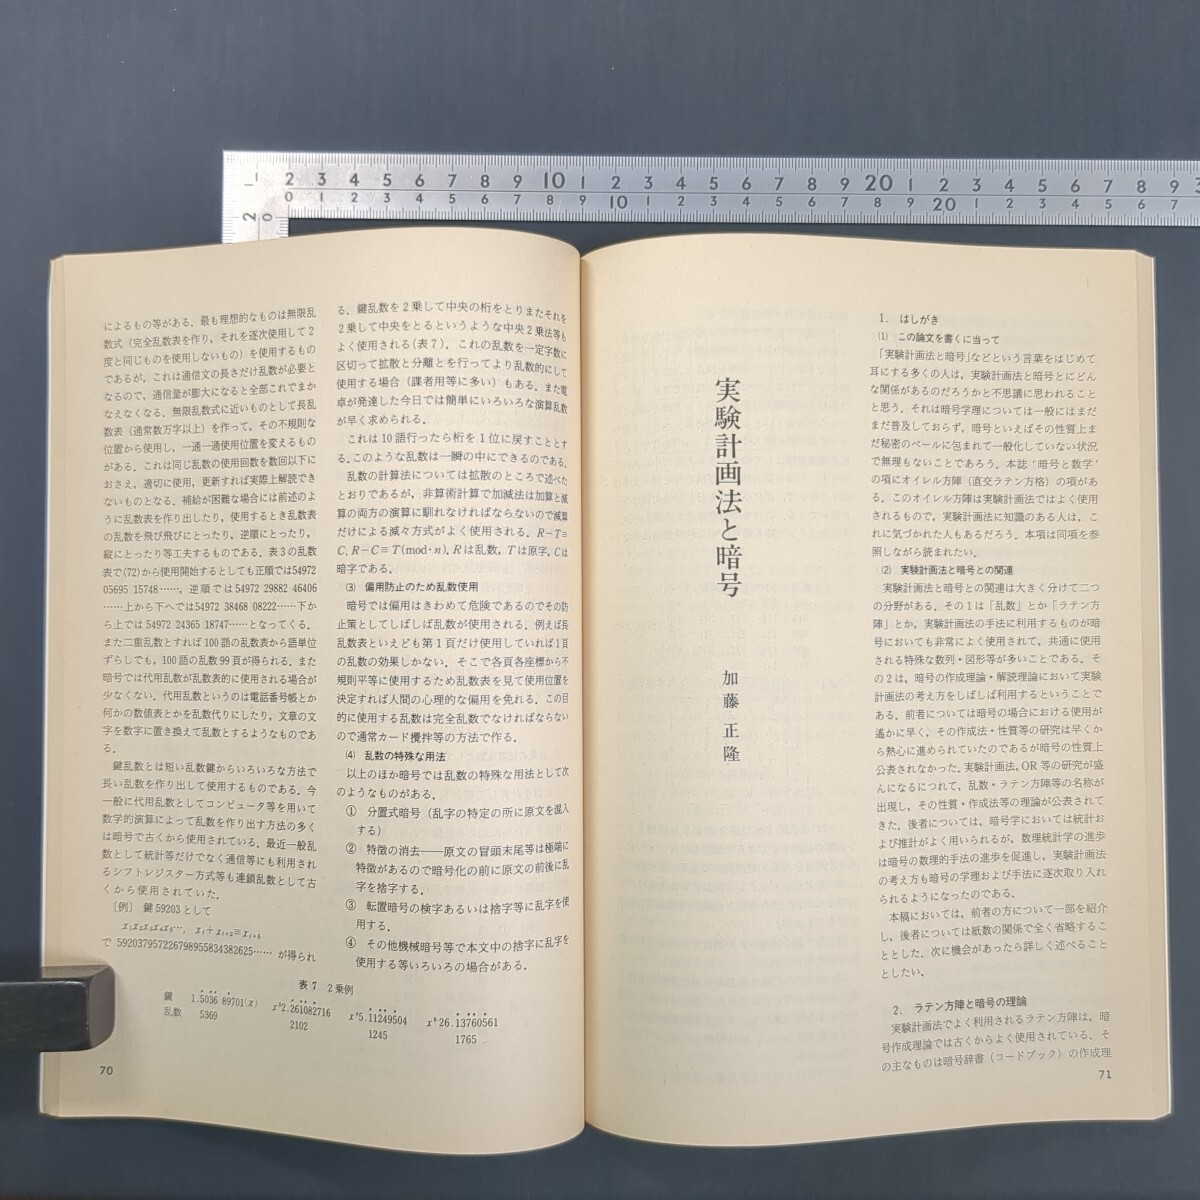 によるもの等がある．最も理想的なものは無限乱
数式（完全乱数表を作り，それを逐次使用して2
度と同じものを使用しないもの）を使用するもの
であるが，これは通信文の長さだけ乱数が必要と
なるので，通信量が膨大になると全部これでまか
なえなくなる．無限乱数式に近いものとして長乱
数表（通常数万字以上）を作って，その不規則な
位置から使用し，一通一通使用位置を変えるもの
がある．これは同じ乱数の使用回数を数回以下に
おさえ，適切に使用，更新すれば実際上解読でき
ないものとなる．補給が困難な場合には前述のよ
うに乱数表を作り出したり，使用するとき乱数表
の乱数を飛び飛びにとったり，逆順にとったり，
縦にとったり等工夫するものである．表3の乱数
表で(72)から使用開始するとしても正順では54972
05695 15748……，逆順では54972 29882 46406
……上から下へでは54972 38468 08222……下か
ら上では 54972 24365 18747……となってくる．
また二重乱数とすれば100語の乱数表から語単位
ずらしても，100語の乱数99頁が得られる．また
暗号では代用乱数が乱数表的に使用される場合が
少なくない．代用乱数というのは電話番号帳とか
何かの数値表とかを乱数代りにしたり，文章の文
字を数字に置き換えて乱数とするようなものであ
る．
鍵乱数とは短い乱数鍵からいろいろな方法で
長い乱数を作り出して使用するものである．今
一般に代用乱数としてコンピュータ等を用いて
数学的演算によって乱数を作り出す方法の多く
は暗号で古くから使用されている．最近一般乱
数として統計等だけでなく通信等にも利用され
るシフトレジスター方式等も連鎖乱数として古
くから使用されていた．
〔例〕 鍵59203として
x₁x₂x₃x₄x₅…，xᵢ＋xᵢ₊₂≡xᵢ₊₅
で 592037957226798955834382625…… が得られ
る．鍵乱数を2乗して中央の桁をとりまたそれを
2乗して中央をとるというような中央2乗法等も
よく使用される(表7)．これの乱数を一定字数に
区切って拡散と分離とを行ってより乱数的にして
使用する場合（諜者用等に多い）もある．また電
卓が発達した今日では簡単にいろいろな演算乱数
が早く求められる．
これは10語行ったら桁を1位に戻すこととす
る．このような乱数は一瞬の中にできるのである．
乱数の計算法については拡散のところで述べた
とおりであるが，非算術計算で加減法は加算と減
算の両方の演算に馴れなければならないので減算
だけによる減々方式がよく使用される．R－T≡
C, R－C≡T(mod·n)，Rは乱数，Tは原字，Cは
暗字である．
⑶ 偏用防止のため乱数使用
暗号では偏用はきわめて危険であるのでその防
止策としてしばしば乱数が使用される．例えば長
乱数表といえども第1頁だけ使用していれば1頁
の乱数の効果しかない．そこで各頁各座標から不
規則平等に使用するため乱数表を見て使用位置を
決定すれば人間の心理的な偏用を免れる．この目
的に使用する乱数は完全乱数でなければならない
ので通常カード攪拌等の方法で作る．
⑷ 乱数の特殊な用法
以上のほか暗号では乱数の特殊な用法として次
のようなものがある．
① 分置式暗号（乱字の特定の所に原文を混入
する）
② 特徴の消去――原文の冒頭末尾等は極端に
特徴があるので暗号化の前に原文の前後に乱
字を捨字する．
③ 転置暗号の検字あるいは捨字等に乱字を使
用する．
④ その他機械暗号等で本文中の捨字に乱字を
使用する等いろいろの場合がある．
表7 2乗例
鍵 1.5036 89701(x) x²2.261082716 x⁴5.11249504 x⁸26.13760561
乱数 5369 2102 1245 1765
70
実験計画法と暗号
加藤正隆
1. はしがき
⑴ この論文を書くに当って
「実験計画法と暗号」などという言葉をはじめて
耳にする多くの人は，実験計画法と暗号とにどん
な関係があるのだろうかと不思議に思われること
と思う．それは暗号学理については一般にはまだ
まだ普及しておらず，暗号といえばその性質上ま
だ秘密のベールに包まれて一般化していない状況
で無理もないことであろう．本誌‘暗号と数学’
の項にオイレル方陣（直交ラテン方格）の項があ
る．このオイレル方陣は実験計画法ではよく使用
されるもので，実験計画法に知識のある人は，こ
れに気づかれた人もあるだろう．本項は同項を参
照しながら読まれたい．
⑵ 実験計画法と暗号との関連
実験計画法と暗号との関連は大きく分けて二つ
の分野がある．その1は「乱数」とか「ラテン方
陣」とか，実験計画法の手法に利用するものが暗
号においても非常によく使用されて，共通に使用
される特殊な数列・図形等が多いことである．そ
の2は，暗号の作成理論・解読理論において実験
計画法の考え方をしばしば利用するということで
ある．前者については暗号の場合における使用が
遙かに早く，その作成法・性質等の研究は早くか
ら熱心に進められていたのであるが暗号の性質上
公表されなかった．実験計画法，OR等の研究が盛
んになるにつれて，乱数・ラテン方陣等の名称が
出現し，その性質・作成法等の理論が公表されて
きた．後者については，暗号学においては統計お
よび推計がよく用いられるが，数理統計学の進歩
は暗号の数理的手法の進歩を促進し，実験計画法
の考え方も暗号の学理および手法に逐次取り入れ
られるようになったのである．
本稿においては，前者の方について一部を紹介
し，後者については紙数の関係で全く省略するこ
ととした．次に機会があったら詳しく述べること
としたい．
2. ラテン方陣と暗号の理論
実験計画法でよく利用されるラテン方陣は，暗
号作成理論では古くからよく使用されている．そ
の主なものは暗号辞書（コードブック）の作成理
71
1 2 3 4 5 6 7 8 9 10 1 2 3 4 5 6 7 8 9 20 1 2 3 4 5 6 7 8 9
0 1 2 3 4 5 6 7 8 9 10 1 2 3 4 5 6 7 8 9 20 1 2 3 4 5 6 7
2 0